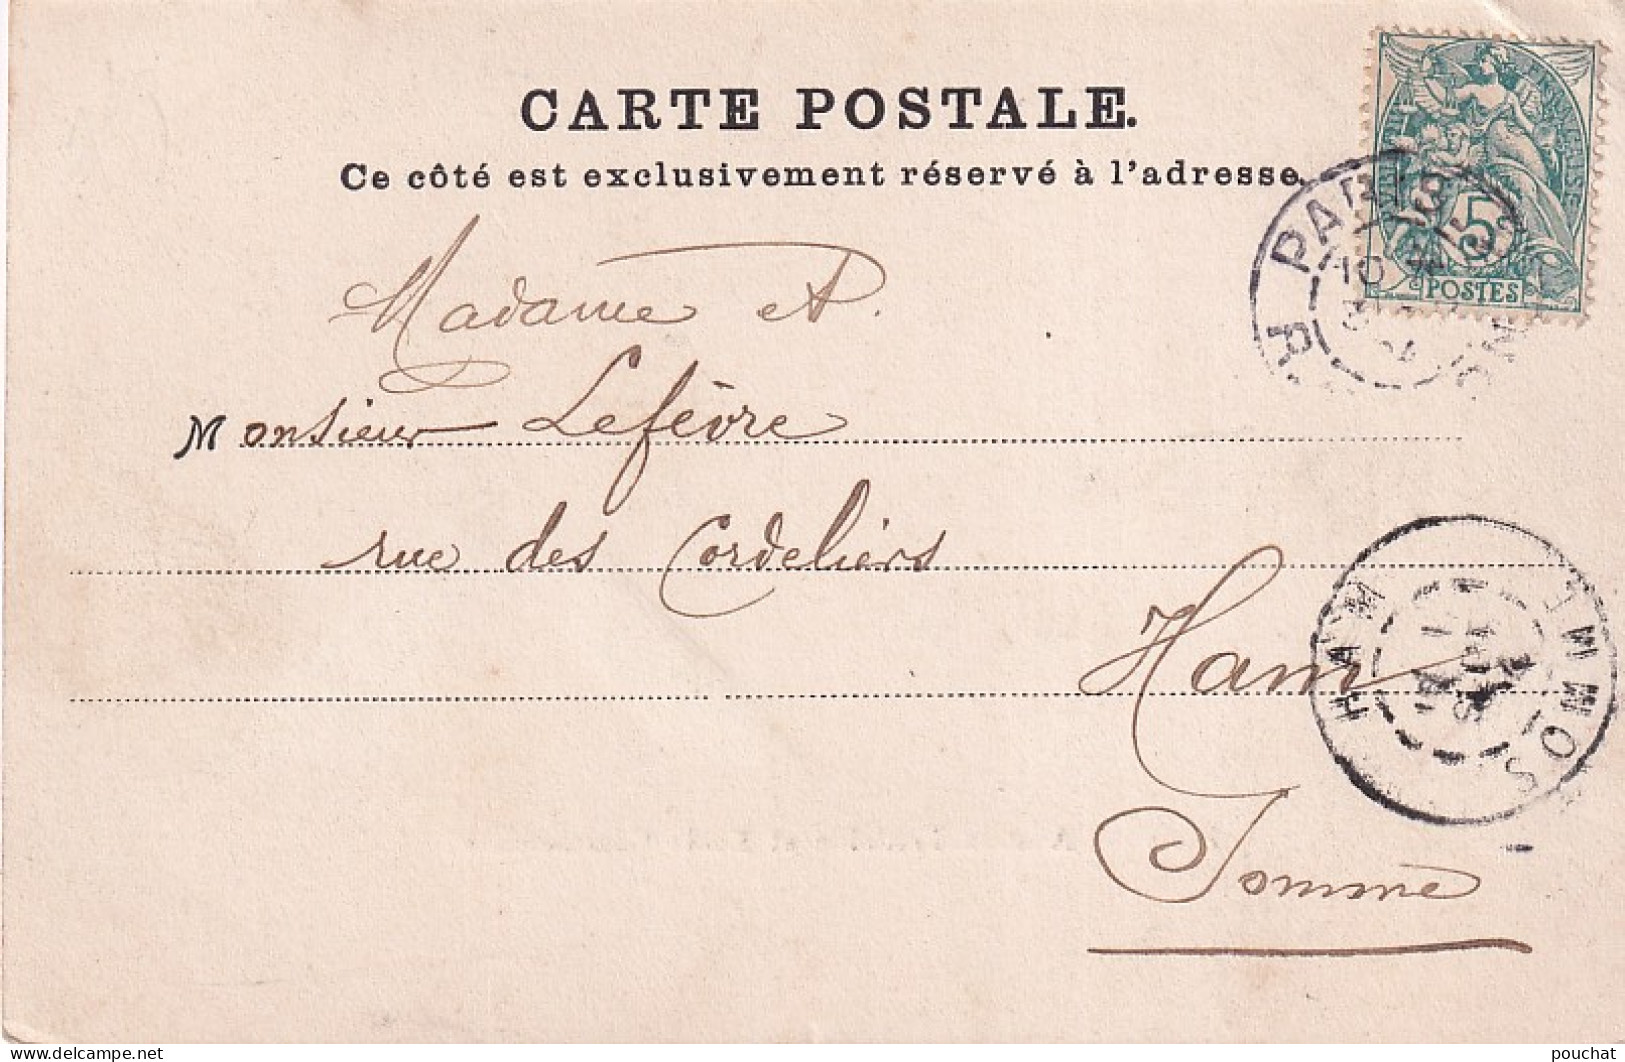 CARTE POSTALE.
Ce côté est exclusivement réservé à l'adresse.
POSTES
5
PARIS
R
10
Madame et
Monsieur Lefèvre
rue des Cordeliers
Ham
Somme
HAM
SOMME
delcampe.net
pouchat